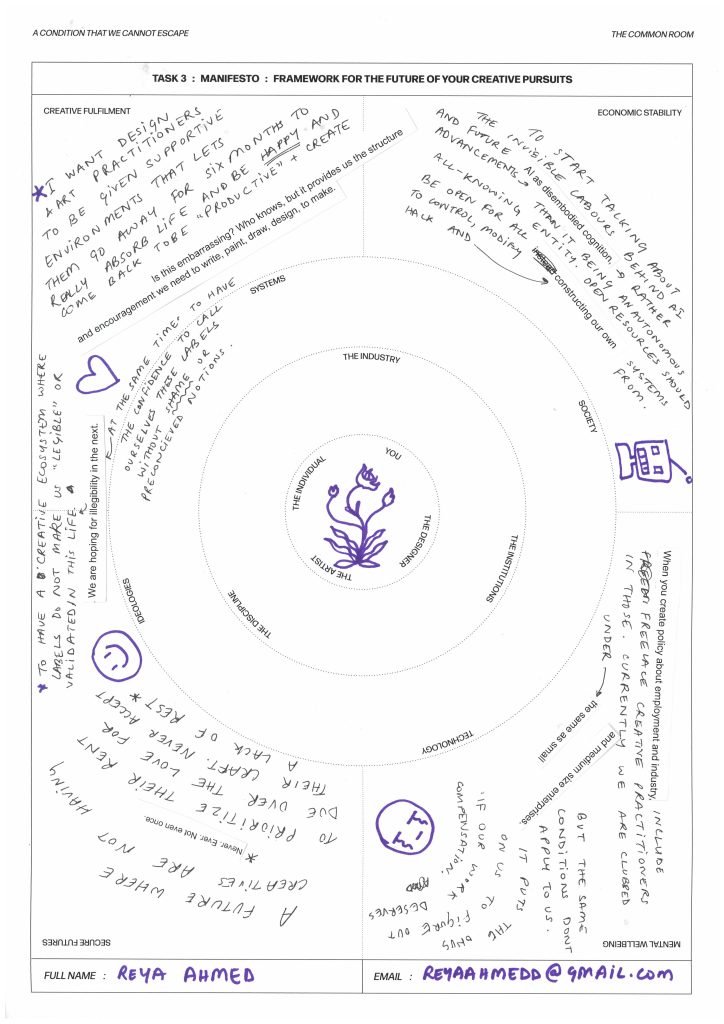 A CONDITION THAT WE CANNOT ESCAPE
THE COMMON ROOM
TASK 3 : MANIFESTO : FRAMEWORK FOR THE FUTURE OF YOUR CREATIVE PURSUITS
CREATIVE FULFILMENT
* I WANT DESIGN
+ ART PRACTITIONERS
TO BE GIVEN SUPPORTIVE
ENVIRONMENTS THAT LETS
THEM GO AWAY FOR SIX MONTHS TO
REALLY ABSORB LIFE AND BE HAPPY AND
COME BACK TO BE "PRODUCTIVE" + CREATE
Is this embarrassing? Who knows, but it provides us the structure
and encouragement we need to write, paint, draw, design, to make.
ECONOMIC STABILITY
TO START TALKING ABOUT
THE INVISIBLE LABOURS BEHIND AI
AND FUTURE AI as disembodied cognition, → RATHER
ADVANCEMENTS → THAN IT BEING AN AUTONOMOUS
ALL-KNOWING ENTITY. OPEN RESOURCES SHOULD
BE OPEN FOR ALL
TO CONTROL, MODIFY
HACK AND → constructing our own
SYSTEMS
FROM.
SYSTEMS
THE INDUSTRY
SOCIETY
YOU
THE INDIVIDUAL
THE DESIGNER
THE ARTIST
THE INSTITUTIONS
THE DISCIPLINE
IDEOLOGIES
TECHNOLOGY
* TO HAVE A CREATIVE ECOSYSTEM WHERE
LABELS DO NOT MAKE US "LEGIBLE" OR
VALIDATED IN THIS LIFE.
We are hoping for illegibility in the next.
AT THE SAME TIME TO HAVE
THE CONFIDENCE TO CALL
OURSELVES THESE LABELS
WITHOUT SHAME OR
PRECONCIEVED NOTIONS.
When you create policy about employment and industry, INCLUDE
FREELACE CREATIVE PRACTITIONERS
IN THOSE. CURRENTLY WE ARE CLUBBED
UNDER → the same as small
and medium size enterprises.
BUT THE SAME
CONDITIONS DONT
APPLY TO US.
IT PUTS
ON US
THE ONUS
TO FIGURE OUT
"IF OUR WORK
DESERVES
COMPENSATION.
MENTAL WELLBEING
A FUTURE WHERE
CREATIVES ARE NOT HAVING
* Never. Ever. Not even once.
TO PRIORITIZE THEIR RENT
DUE OVER THE LOVE FOR
THEIR CRAFT. NEVER ACCEPT
A LACK OF REST *
SECURE FUTURES
FULL NAME : REYA AHMED
EMAIL : REYAAHMEDD@GMAIL.COM